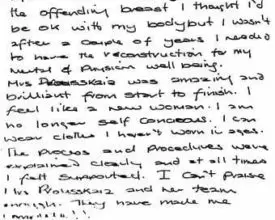 the offending breast I thought I'd
be ok with my body but I wasn't
after a couple of years I needed
to have the reconstruction to my
mental & physical well being.
Mrs was amazing and
brilliant from start to finish. I
feel like a new woman. I am
no longer self concious. I can
wear clothes I haven't worn in ages.
The process and procedures were
explained clearly and at all times
I felt supported. I can't praise
Mrs and her team
enough. They have made me